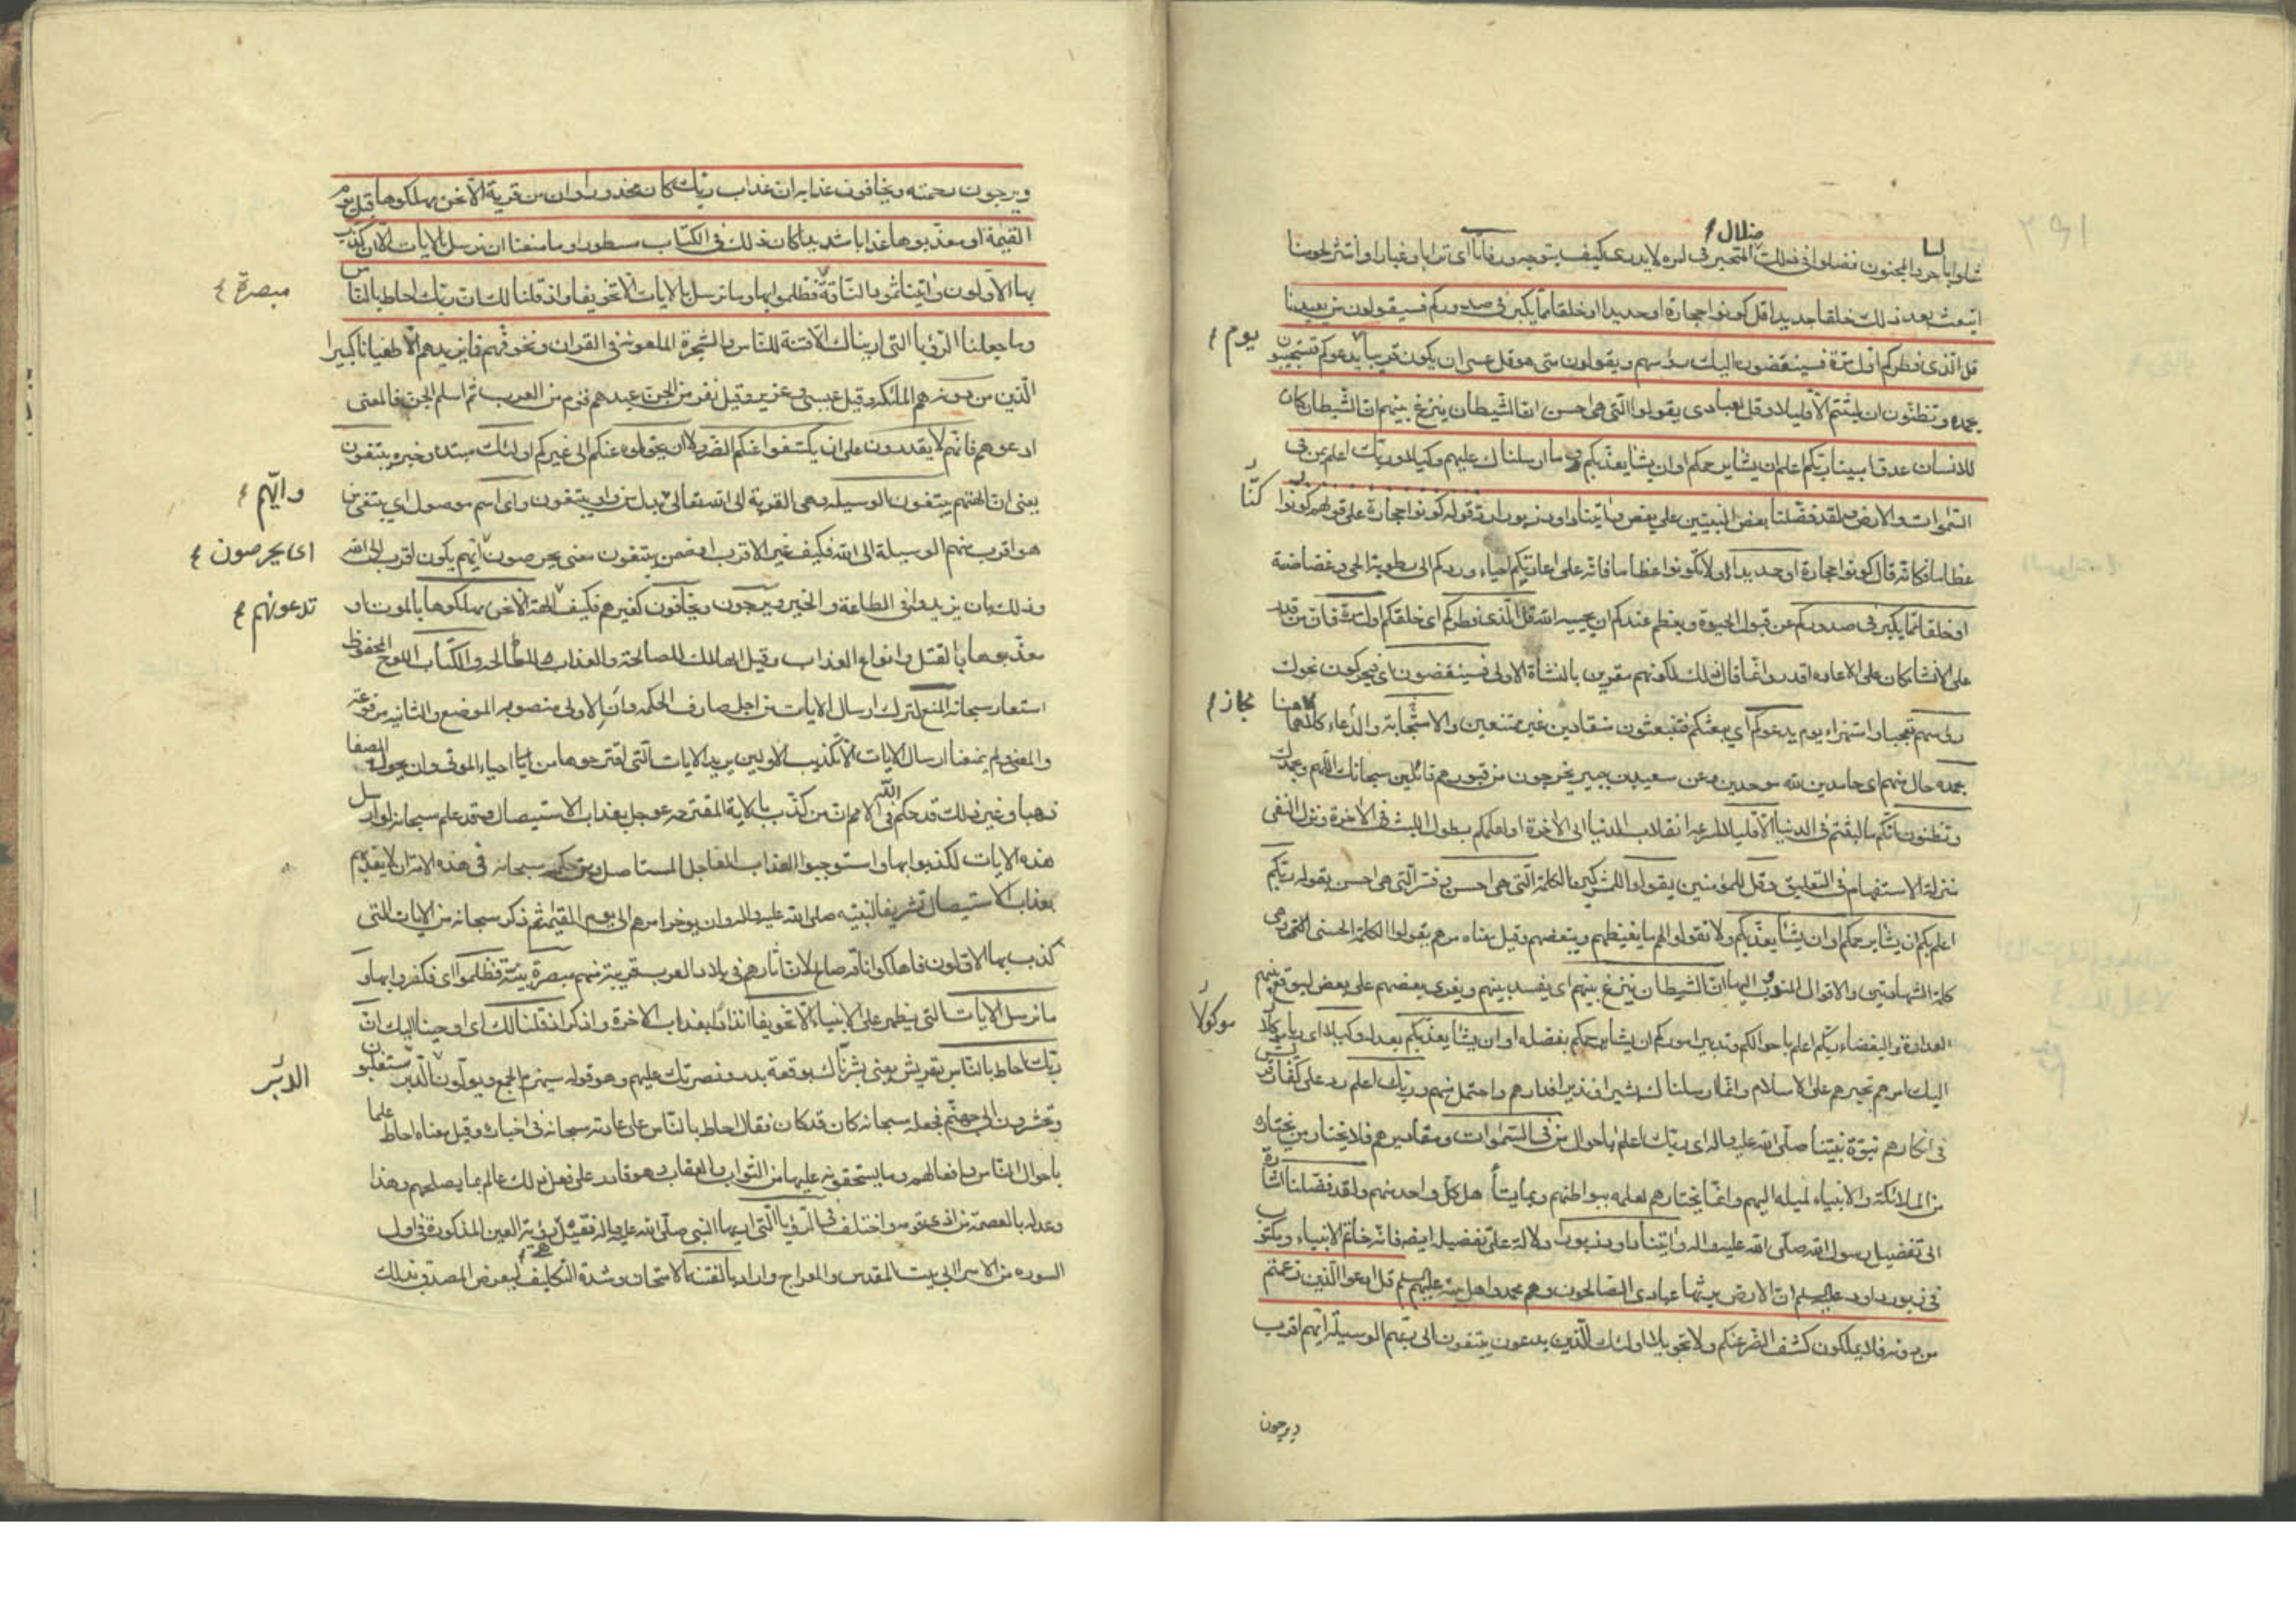 ضلال
شاعر والمجنون فضلوا في ذلك ضلال المتحير في امره لا يدري كيف يتوجه ورفاتا اي ترابا وغبارا وانتثر لحومنا
انبعث بعد ذلك خلقا جديدا قل كونوا حجارة او حديدا او خلقا مما يكبر في صدوركم فسيقولون من يعيدنا
قل الذي فطركم اول مرة فسينغضون اليك رؤسهم ويقولون متى هو قل عسى ان يكون قريبا يدعوكم فتستجيبون
يوم
بحمده وتظنون ان لبثتم الا قليلا وقل لعبادي يقولوا التي هي احسن ان الشيطان ينزغ بينهم ان الشيطان كان
للانسان عدوا مبينا ربكم اعلم ان يشا يرحمكم او ان يشا يعذبكم وما ارسلناك عليهم وكيلا وربك اعلم بمن في
السموات والارض ولقد فضلنا بعض النبيين على بعض واتينا داود زبورا رد قوله كونوا حجارة على قولهم كونوا
كنا
عظاما فكانه قال كونوا حجارة او حديدا ولا تكونوا عظاما فانه على اعادتكم احياء وردكم الى رطوبة الحي وغضاضته
او خلقا مما يكبر في صدوركم عن قبول الحيوة ويعظم عندكم ان يحييه الله قل الذي فطركم اي خلقكم اول مرة فان من قدر
على الانشاء كان على الاعادة اقدر وانما قال ذلك لكونهم مقرين بالنشاة الاولى فسينغضون اي فيحركون نحوك
رؤسهم تعجبا واستهزاء يوم يدعوكم اي يبعثكم فتبعثون منقادين غير ممتنعين والاستجابة والدعاء كلاهما
هنا مجاز
بحمده حال منهم اي حامدين لله موحدين وعن سعيد بن جبير يخرجون من قبورهم قائلين سبحانك اللهم وبحمدك
وتظنون انكم ما لبثتم في الدنيا الا قليلا لسرعة انقلاب الدنيا الى الاخرة او لعلمكم بطول اللبث في الاخرة ونزل النفي
منزلة الاستفهام في التعليق وقل للمؤمنين يقولوا للمشركين الكلمة التي هي احسن وفسر التي هي احسن بقوله ربكم
اعلم بكم ان يشا يرحمكم او ان يشا يعذبكم ولا تقولوا لهم ما يغيظهم ويبغضهم وقيل معناه مرهم يقولوا الكلمة الحسنى التي هي
كلمة الشهادتين والاقوال المندوب اليها ان الشيطان ينزغ بينهم اي يفسد بينهم ويغري بعضهم على بعض ليوقع بينهم
العداوة والبغضاء ربكم اعلم باحوالكم وتدبير اموركم ان يشا يرحمكم بفضله او ان يشا يعذبكم بعدله وكيلا اي ربا
موكولا
اليك امرهم تجبرهم على الاسلام وانما ارسلناك بشيرا ونذيرا فدارهم واحتمل منهم وربك اعلم رد على كفار قريش
في انكارهم نبوة نبينا صلى الله عليه واله اي ربك اعلم باحوال من في السموات ومقاديرهم فلا يختار من يختاره
من الملائكة والانبياء لميله اليهم وانما يختارهم لعلمه ببواطنهم وبما يتأهل كل واحد منهم ولقد فضلنا اشارة
الى تفضيل رسول الله صلى الله عليه واله واتينا داود زبورا دلالة على تفضيله ايضه فانه خاتم الانبياء ومكتوب
في زبور داود عليه السلم ان الارض يرثها عبادي الصالحون وهم محمد واهل بيته عليهم السلم قل ادعوا الذين زعمتم
من دونه فلا يملكون كشف الضر عنكم ولا تحويلا اولئك الذين يدعون يبتغون الى ربهم الوسيلة ايهم اقرب
ويرجون
ويرجون رحمته ويخافون عذابه ان عذاب ربك كان محذورا وان من قرية الا نحن مهلكوها قبل يوم
القيمة او معذبوها عذابا شديدا كان ذلك في الكتاب مسطورا وما منعنا ان نرسل بالايات الا ان كذب
بها الاولون واتينا ثمود الناقة فظلموا بها وما نرسل بالايات الا تخويفا واذ قلنا لك ان ربك احاط بالناس
مبصرة
وما جعلنا الرؤيا التي اريناك الا فتنة للناس والشجرة الملعونة في القران ونخوفهم فما يزيدهم الا طغيانا كبيرا
الذين من دونه هم الملئكة وقيل عيسى وعزير وقيل نفر من الجن عبدهم قوم من العرب ثم اسلم الجن فالمعنى
ادعوهم فانهم لا يقدرون على ان يكشفوا عنكم الضر ولا ان يحولوه عنكم الى غيركم اولئك مبتدء وخبره يبتغون
يعني ان الهتهم يبتغون الوسيلة وهي القربة الى الله تعالى بدل من واو يبتغون واي اسم موصول اي يبتغي من
وايهم
هو اقرب منهم الوسيلة الى الله فكيف غير الاقرب او ضمن يبتغون معنى يحرصون ايهم يكون اقرب الى الله
اي يحرصون
وذلك بان يزيدوا في الطاعة والخير ويرجون ويخافون كغيرهم فكيف الهة الا نحن مهلكوها بالموت او
تدعونهم
معذبوها بالقتل وانواع العذاب وقيل الهلاك للصالحة والعذاب للطالحة والكتاب اللوح المحفوظ
استعار سبحانه المنع لترك ارسال الايات من اجل صارف الحكمة وان الاولى منصوبة الموضع والثانية مرفوعة
والمعنى ولم يمنعنا ارسال الايات الا تكذيب الاولين يريد الايات التي اقترحوها من احياء الموتى وان يحول الصفا
ذهبا وغير ذلك وقد حكم الله في الامم ان من كذب بالاية المقترحة عوجل بعذاب الاستيصال وقد علم سبحانه لو ارسل
هذه الايات لكذبوا بها واستوجبوا العذاب العاجل المستاصل ومن حكمه سبحانه في هذه الامة ان لا يعذبهم
بعذاب الاستيصال تشريفا لنبيه صلى الله عليه واله وان يوخر امرهم الى يوم القيمة ثم ذكر سبحانه من الايات التي
كذب بها الاولون فاهلكوا ناقة صالح لان اثارهم في بلاد العرب قريبة منهم مبصرة بينة فظلموا اي فكفروا بها و
ما نرسل الايات التي نظهر على الانبياء الا تخويفا انذارا بعذاب الاخرة واذكر اذ قلنا لك اي اوحينا اليك ان
ربك احاط بالناس بقريش يعني بشرناك بوقعة بدر ونصرتك عليهم وهو قوله سيهزم الجمع ويولون الدبر ستغلبون
الدبر
وتحشرون الى جهنم فجعله سبحانه كان قد كان فقال احاط بالناس على عادته سبحانه في اخباره وقيل معناه احاط علما
باحوال الناس وافعالهم وما يستحقونه عليها من الثواب والعقاب وهو قادر على فعل ذلك عالم بما يصلحهم وهذا
وعد له بالعصمة من اذى قومه واختلف في الرؤيا التي راها النبي صلى الله عليه واله فقيل هي رؤية العين المذكورة في اول
السورة من الاسراء الى بيت المقدس والمعراج واراد بالفتنة الامتحان وشدة التكليف ليعرض المصدق بذلك